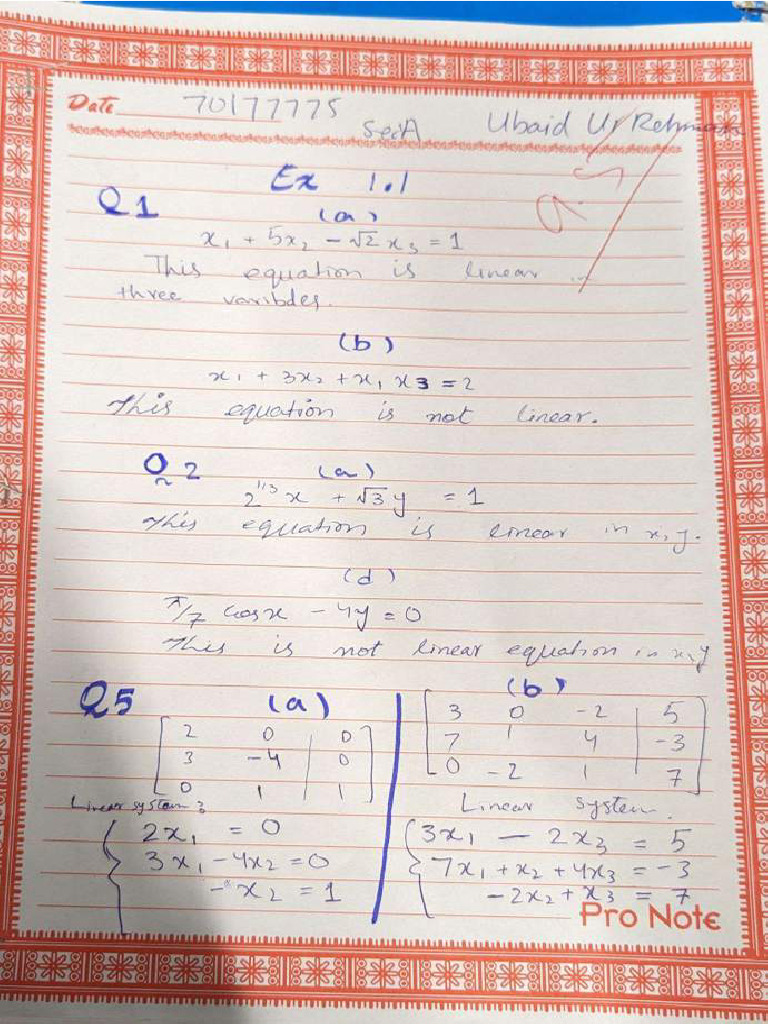 Date 70177775
Sec A Ubaid Ur Rehman
9.5
Ex 1.1
Q1
(a)
x₁ + 5x₂ - √2 x₃ = 1
This equation is linear in
three varibles.
(b)
x₁ + 3x₂ + x₁ x₃ = 2
This equation is not linear.
Q2 (a)
2^{1/3} x + √3 y = 1
This equation is linear in x, y.
(d)
π/7 cos x - 4y = 0
This is not linear equation in x, y
Q5 (a)
2 0 | 0
3 -4 | 0
0 1 | 1
Linear system:
2x₁ = 0
3x₁ - 4x₂ = 0
- x₂ = 1
(b)
3 0 -2 | 5
7 1 4 | -3
0 -2 1 | 7
Linear system.
3x₁ - 2x₃ = 5
7x₁ + x₂ + 4x₃ = -3
-2x₂ + x₃ = 7
Pro Note